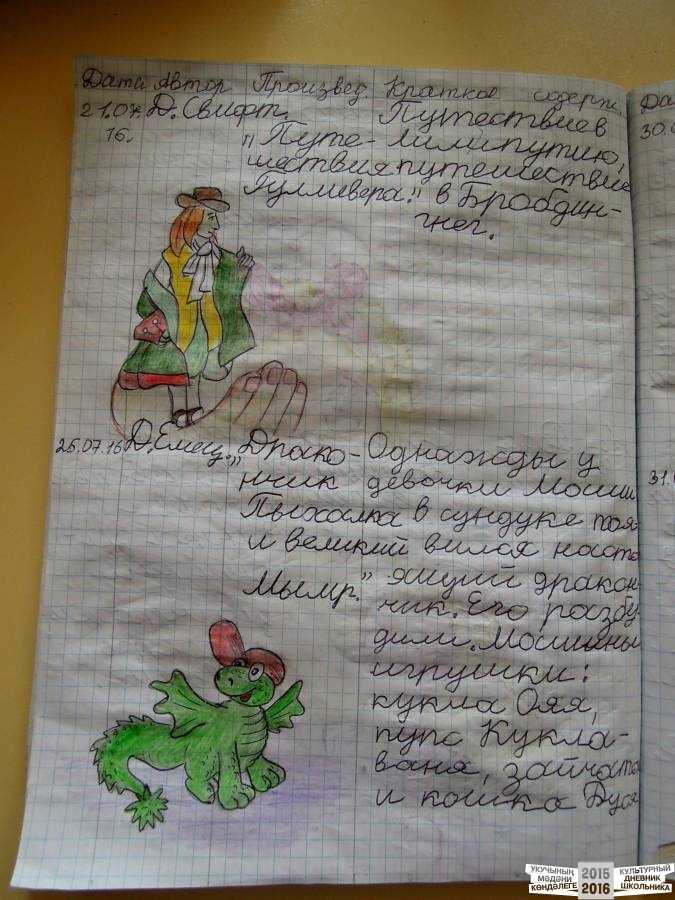 Дата Автор Произвед. Краткое содерж.
21.07.16. Д. Свифт. „Путешествия Гулливера.“ Путешествие в Лилипутию, путешествие в Бробдингнег.
25.07.16 Д. Емец. „Дракончик Пыхалка и великий Мымр.“
Однажды у
девочки Маши
в сундуке поя-
вился насто
ящий дракон
чик. Его разбу
дили. Машины
игрушки:
кукла Оля,
пупс Кукла-
ваня, зайчата
и кошка Дуся
Да
30.0
31.
УКУЧЫНЫҢ
МӘДӘНИ
КӨНДӘЛЕГЕ
2015
2016
КУЛЬТУРНЫЙ
ДНЕВНИК
ШКОЛЬНИКА